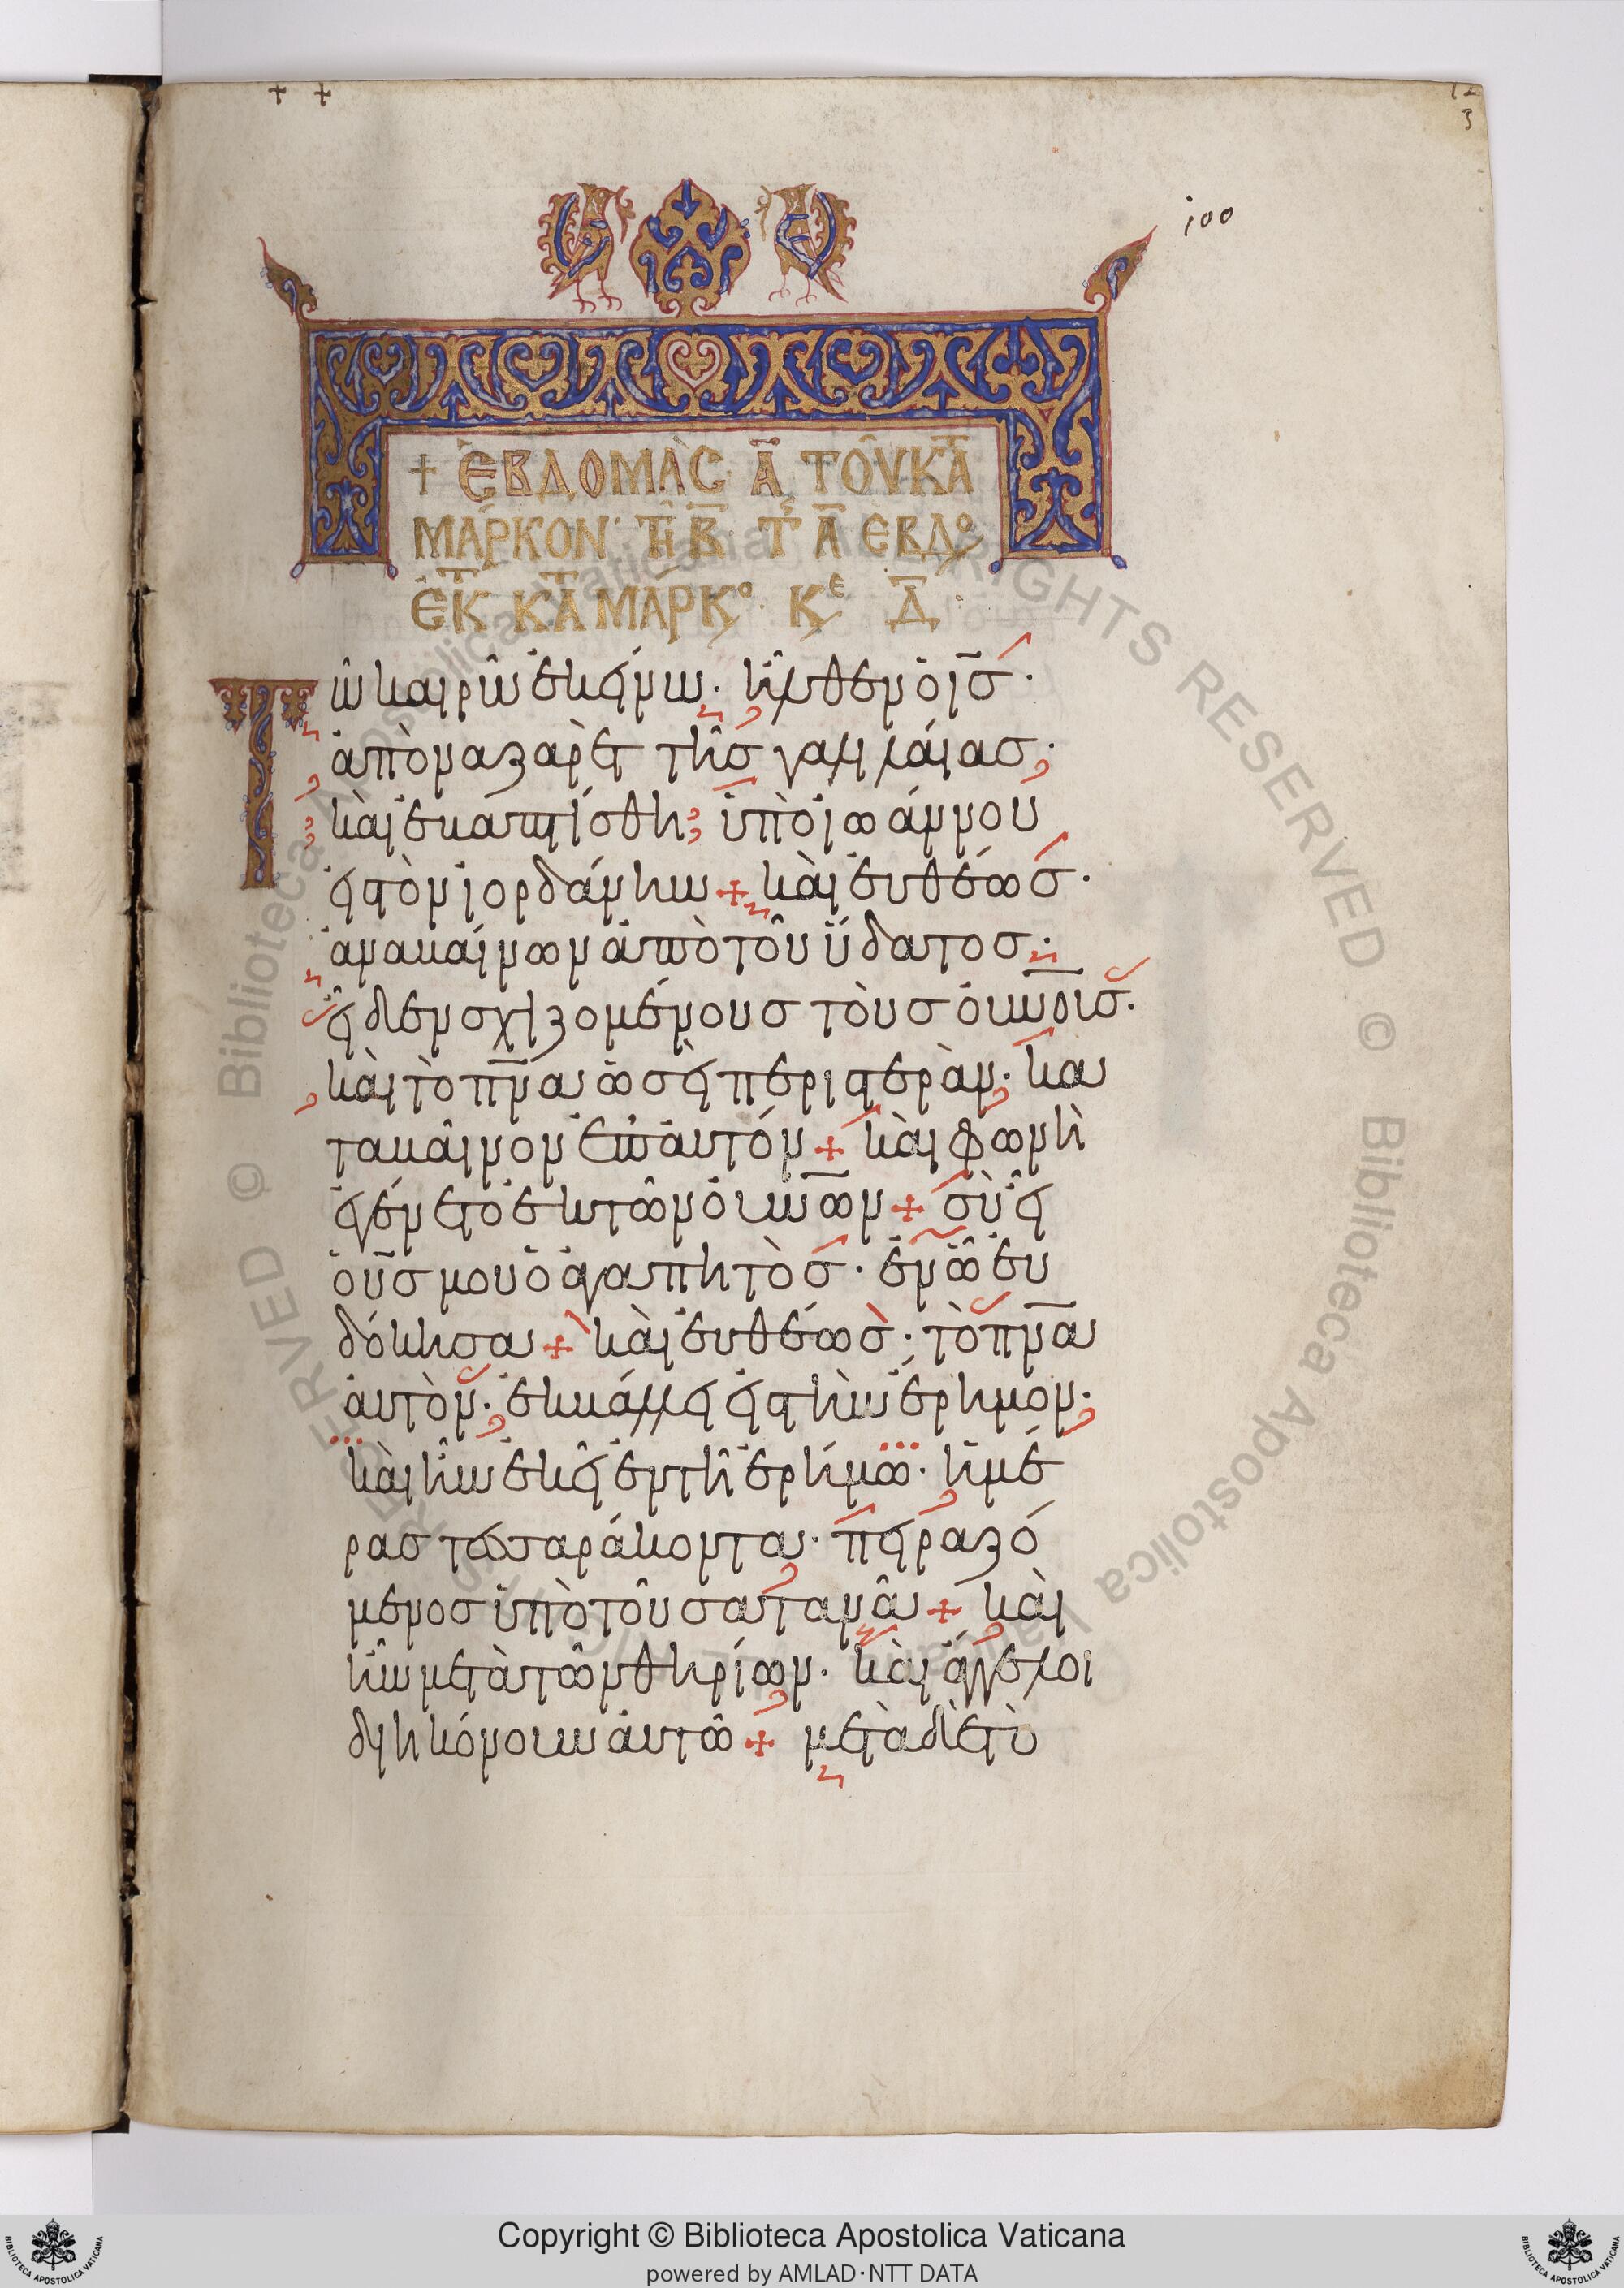 100
+ ἙΒΔΟΜᾺС Α̅ ΤΟΥ͂ ΚΑΤ
ΜΆΡΚΟΝ· ΤΗ͂ Β̅ Τ Α̅ ΕΒΔΟ
ἘΚ ΚΑΤ ΜΆΡΚΟ· ΚΕ Δ̅·
Τῶ καιρῶ ἐκείνω· ἦλθεν ὁ ι̅ς̅·
ἀπὸ ναζαρὲτ τῆς γαλιλαίας·
καὶ ἐβαπτίσθη· ὑπὸ ἰωάννου
εἰς τὸν ἰορδάνην + καὶ εὐθέως·
ἀναβαίνων ἀπὸ τοῦ ὕδατος·
εἶδεν σχιζομένους τοὺς ο̅υ̅ν̅ο̅υ̅ς̅·
καὶ τὸ π̅ν̅α̅ ὡσεὶ περιστερὰν· κα
ταβαῖνον ἐπ' αὐτόν + καὶ φωνὴ
ἐγένετο ἐκ τῶν ο̅υ̅ν̅ω̅ν̅ + σὺ εἶ
ὁ υ̅ς̅ μου ὁ ἀγαπητὸς· ἐν ὧ εὐ
δόκησα + καὶ εὐθέως· τὸ π̅ν̅α̅
αὐτὸν· ἐκβάλλει εἰς τὴν ἔρημον·
καὶ ἦν ἐκεῖ ἐν τῆ ἐρήμω· ἡμέ
ρας τεσσαράκοντα· πειραζό
μενος ὑπὸ τοῦ σατανᾶ + καὶ
ἦν μετὰ τῶν θηρίων· καὶ ἄγγελοι
διηκόνουν αὐτῶ + μετὰ δὲ τὸ
Copyright © Biblioteca Apostolica Vaticana
powered by AMLAD·NTT DATA